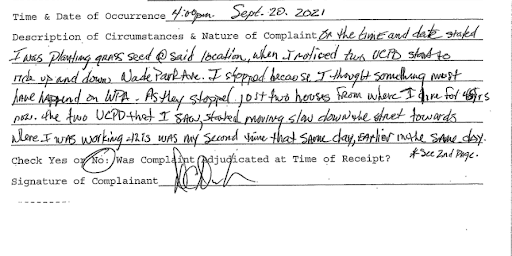 Time & Date of Occurrence 4:00pm. Sept. 20. 2021
Description of Circumstances & Nature of Complaint On the time and date stated
I was planting grass seed @ said location, when I noticed two UCPD start to
ride up and down Wade Park Ave. I stopped because I thought something must
have happend on WPA. As they stopped just two houses from where I live for 48yrs
now. the two UCPD that I saw, started moving slow down the street towards
where I was working this was my second time that same day, earlier in the same day.
Check Yes or No: Was Complaint Adjudicated at Time of Receipt? *See 2nd Page.
Signature of Complainant